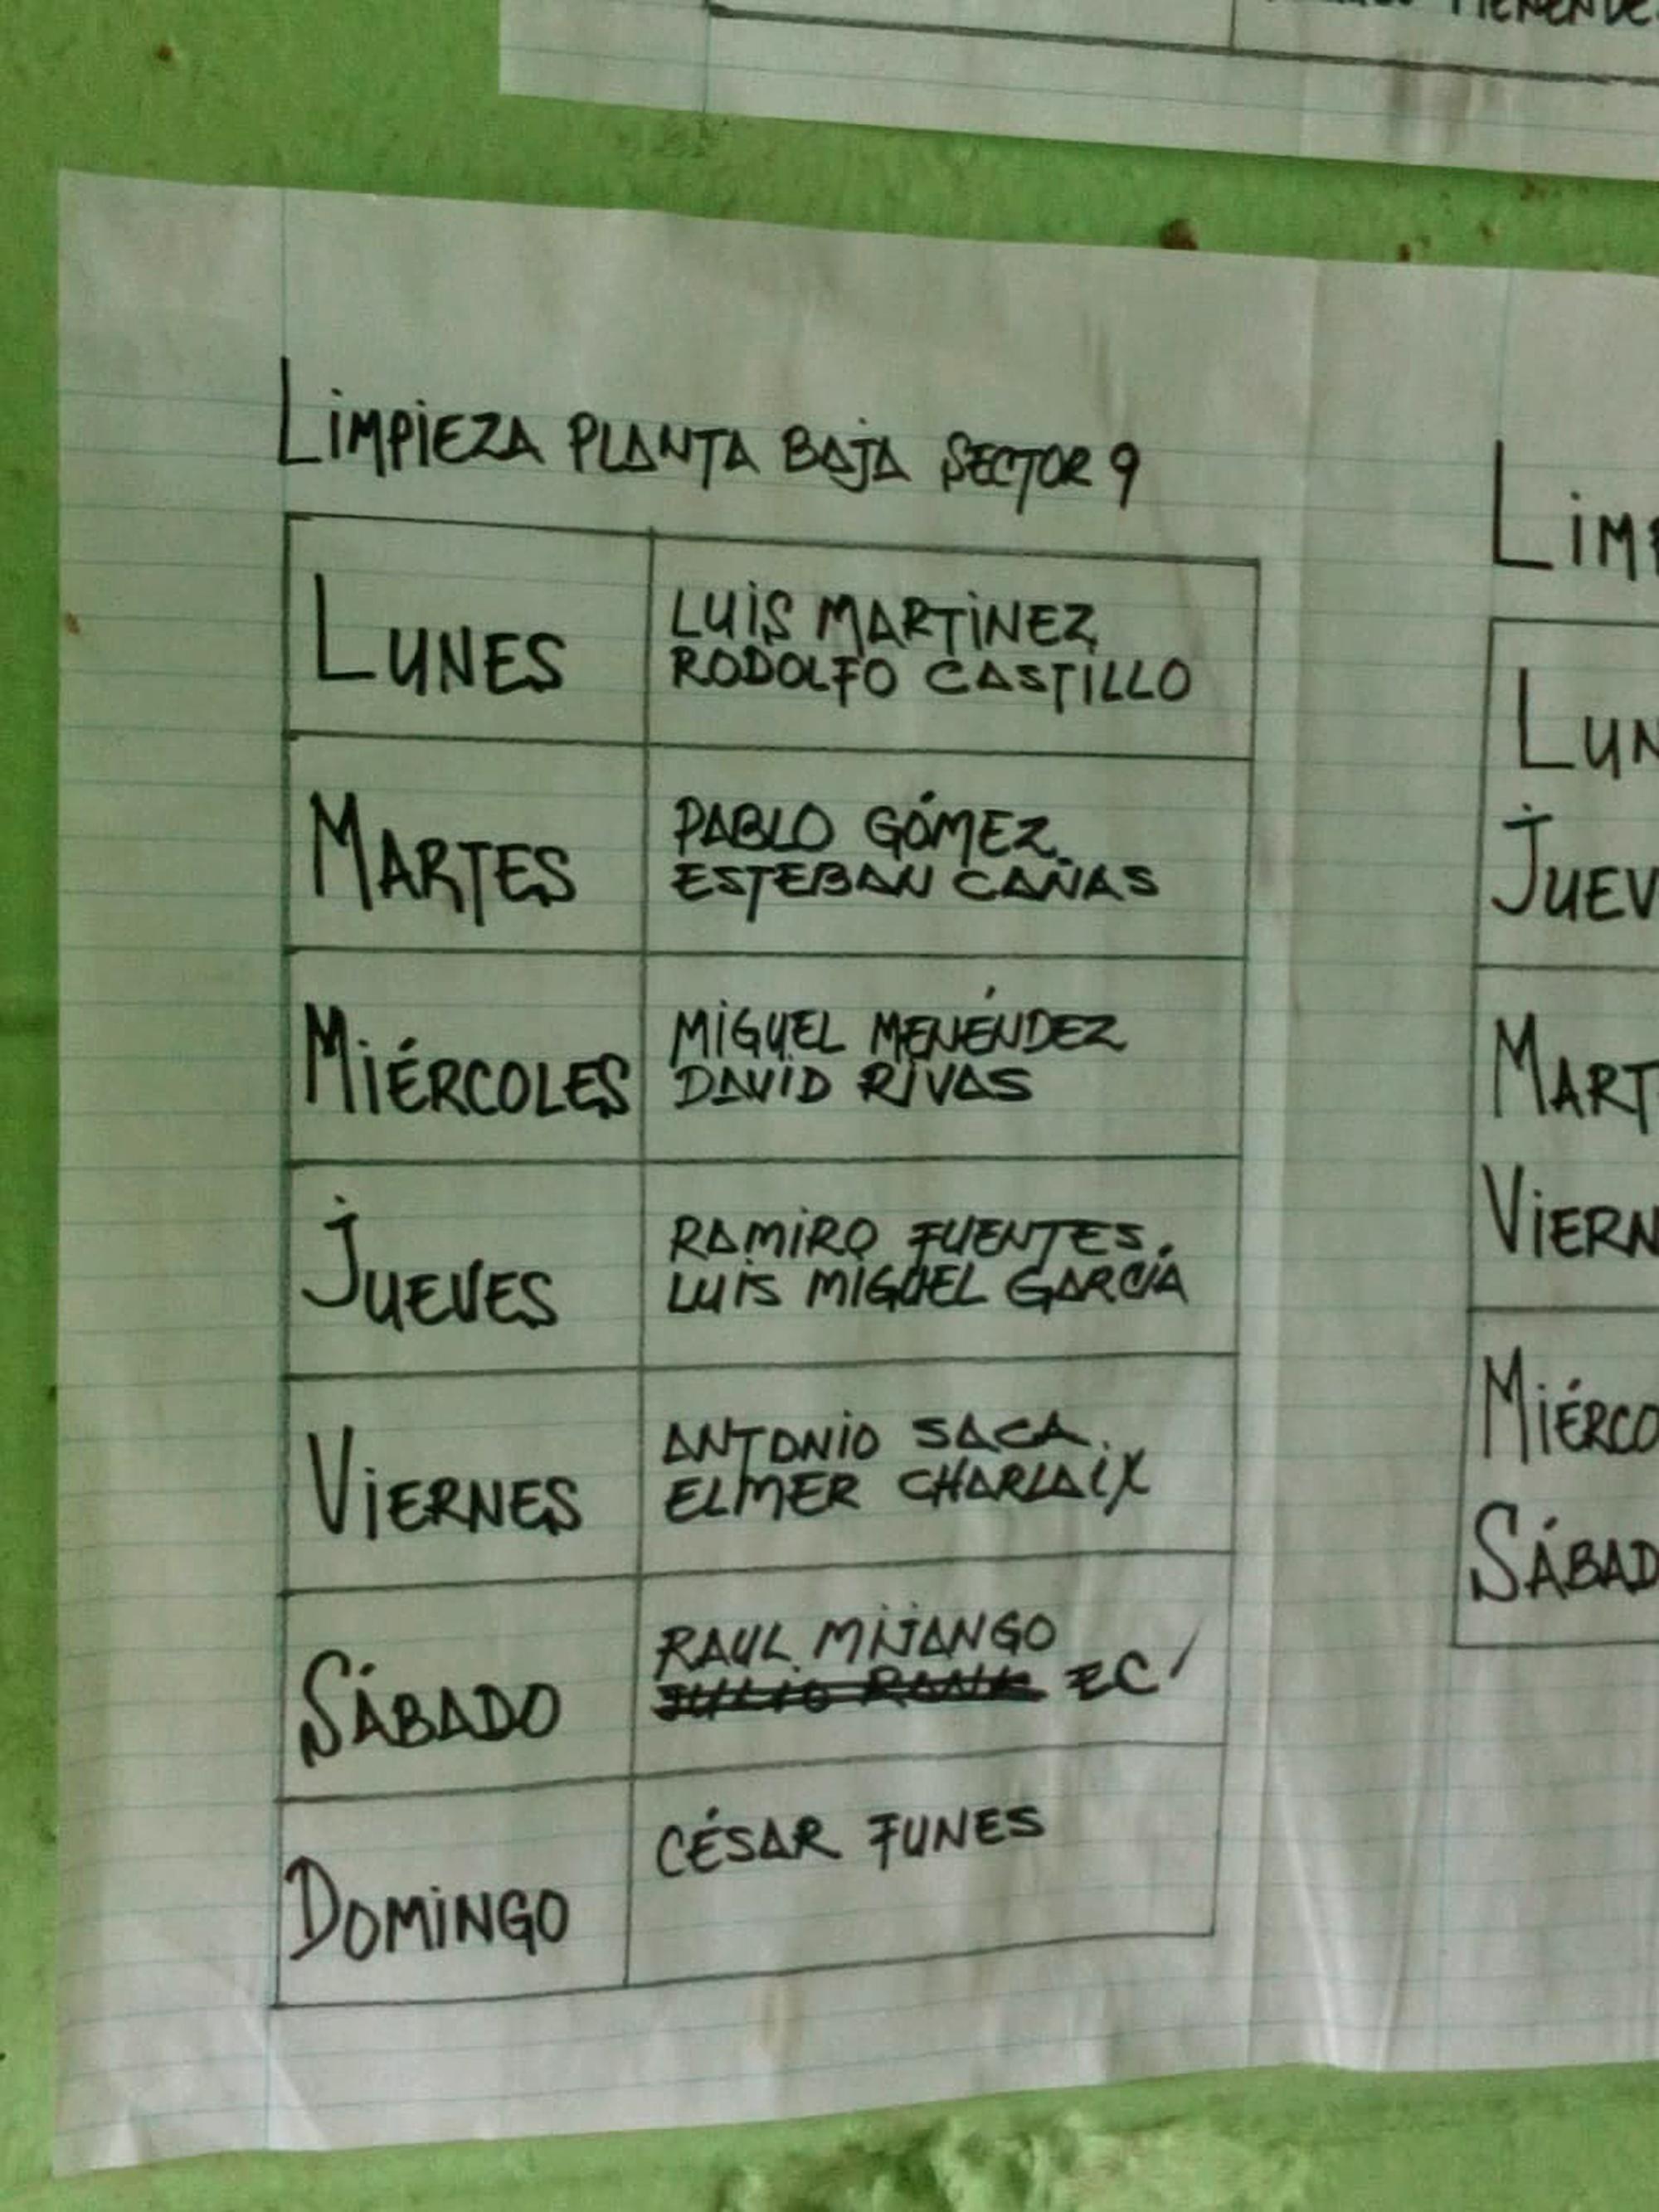 MENÉNDE
LIMPIEZA PLANTA BAJA SECTOR 9
LUNES
LUIS MARTINEZ
RODOLFO CASTILLO
MARTES
PABLO GÓMEZ
ESTEBAN CAÑAS
MIÉRCOLES
MIGUEL MENÉNDEZ
DAVID RIVAS
JUEVES
RAMIRO FUENTES
LUIS MIGUEL GARCÍA
VIERNES
ANTONIO SACA
ELMER CHARLAIX
SÁBADO
RAUL MIJANGO
EC
DOMINGO
CÉSAR FUNES
LIMP
LUN
JUEV
MART
VIERN
MIÉRCO
SÁBAD